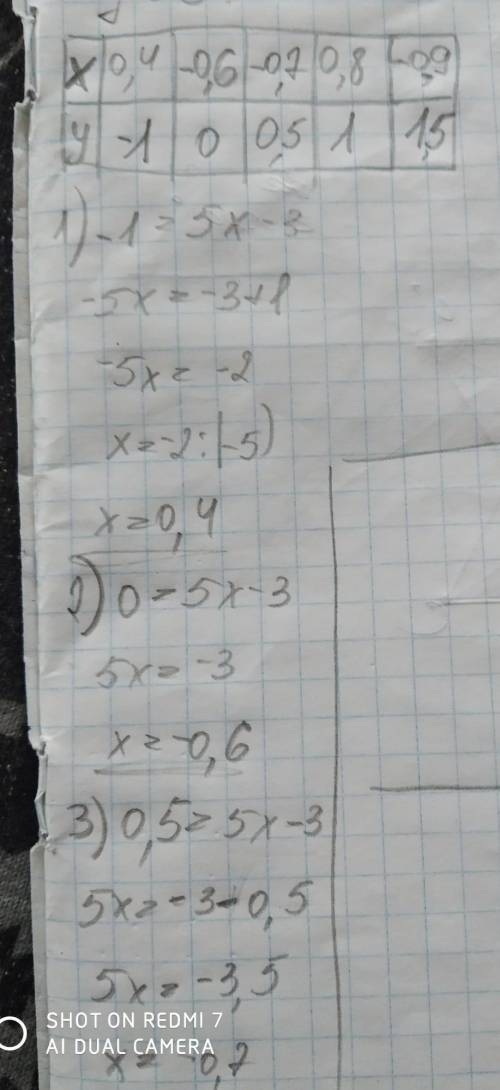 x 0,4 -0,6 -0,7 0,8 -0,9
y -1 0 0,5 1 1,5
1) -1 = 5x - 3
-5x = -3+1
-5x = -2
x = -2 : (-5)
x = 0,4
2) 0 = 5x - 3
5x = -3
x = -0,6
3) 0,5 = 5x - 3
5x = -3 - 0,5
5x = -3,5
SHOT ON REDMI 7
AI DUAL CAMERA
x = -0,7